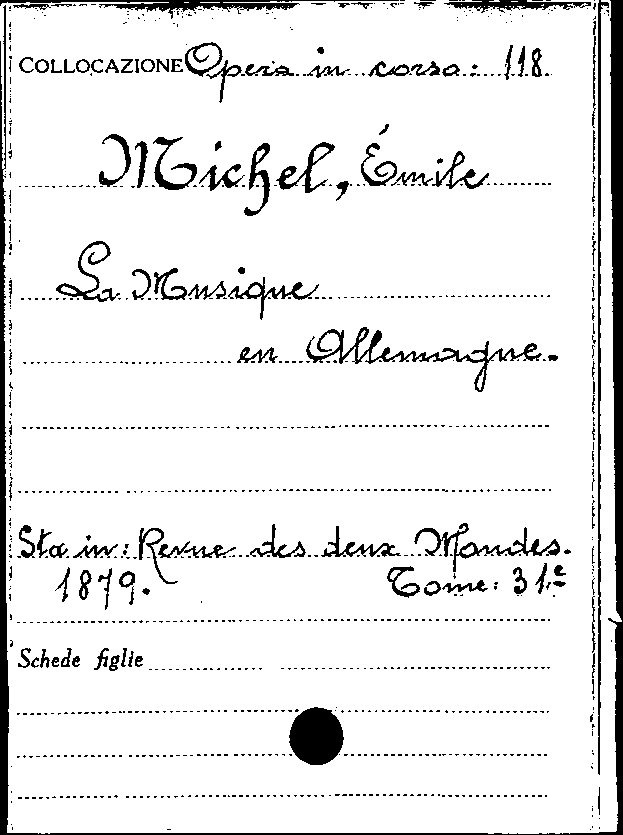 COLLOCAZIONE Opera in corso: 118.
Michel, Émile
La Musique
en Allemagne.
Sta in: Revue des deux Mondes.
1879. Tome: 31.e
Schede figlie